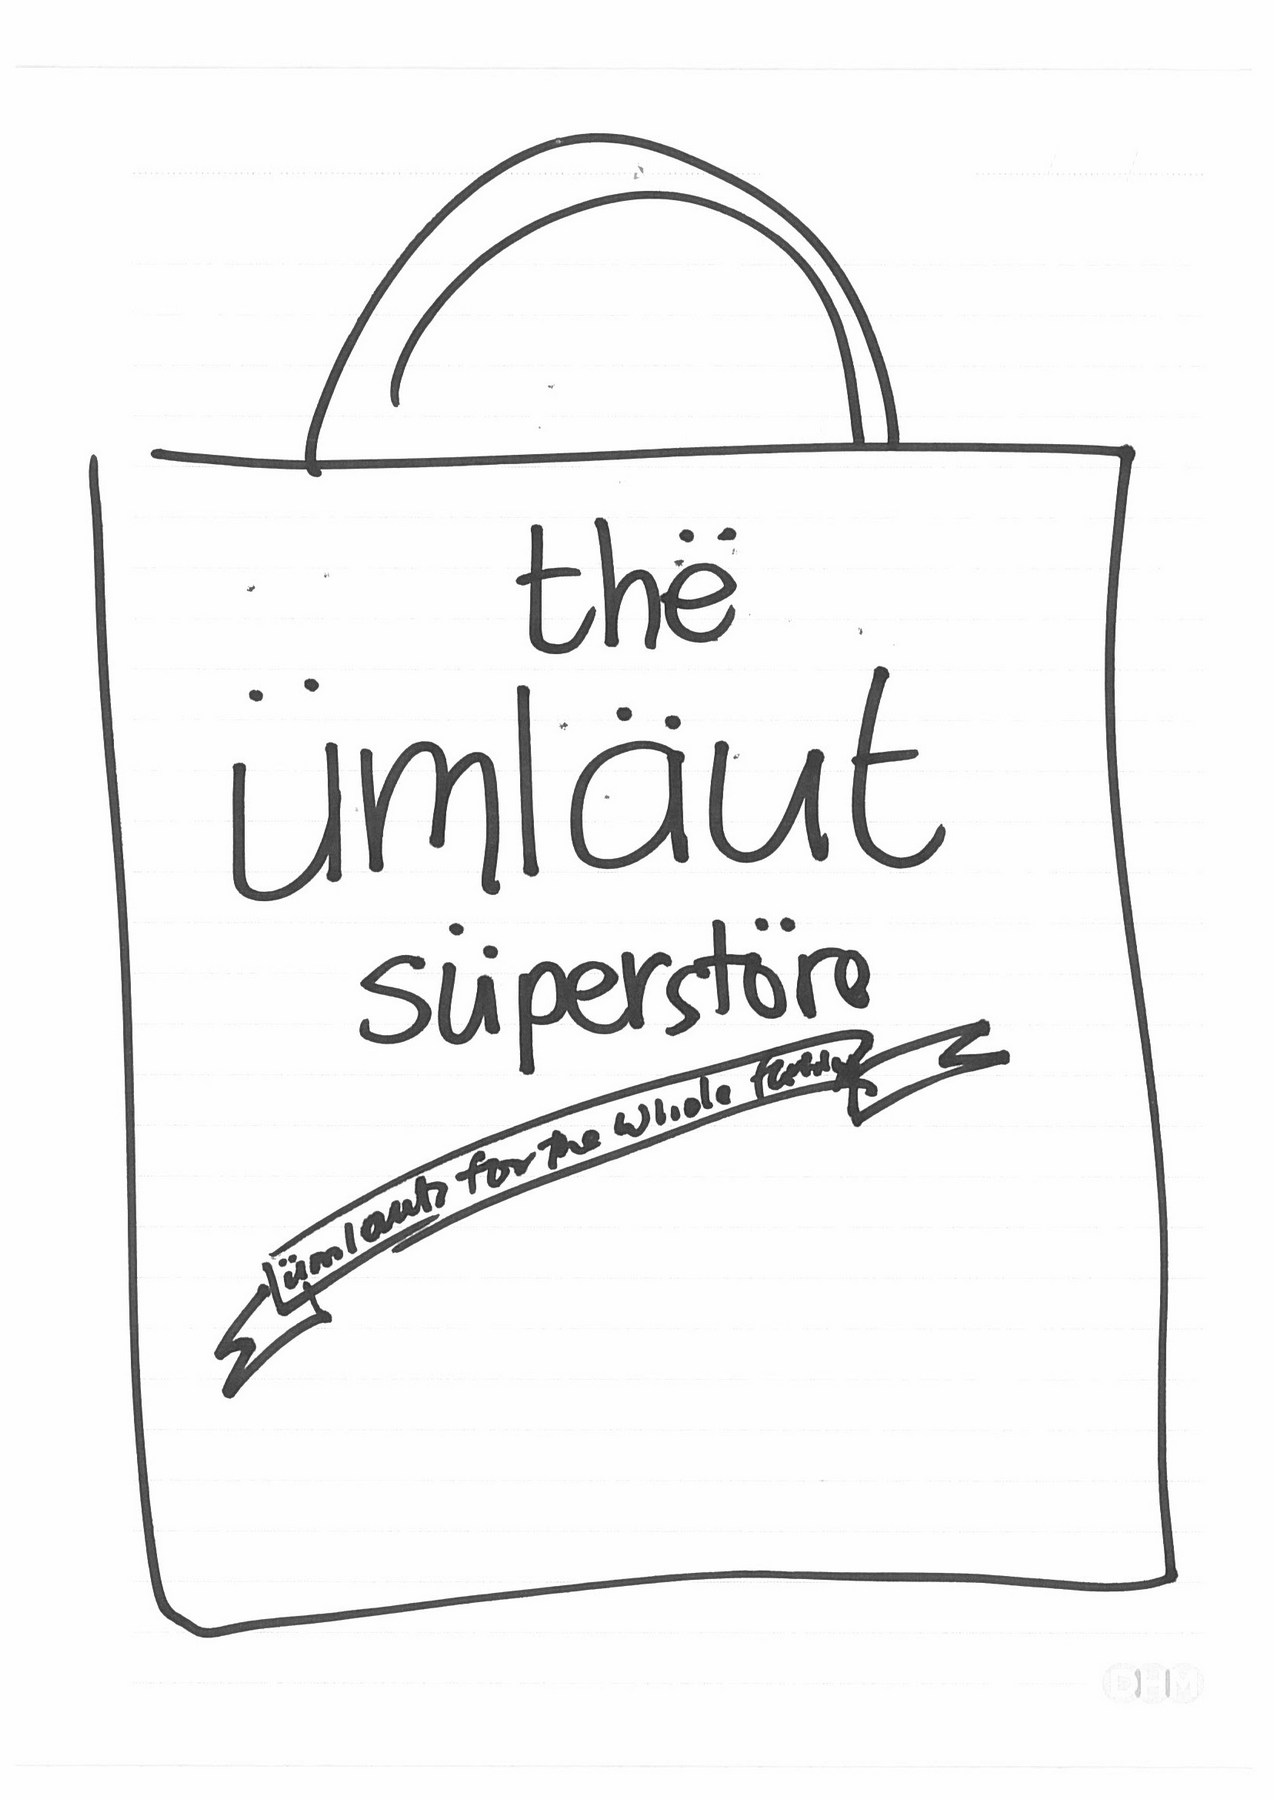 thë
ümläut
süperstöre
ümlauts for the whole family